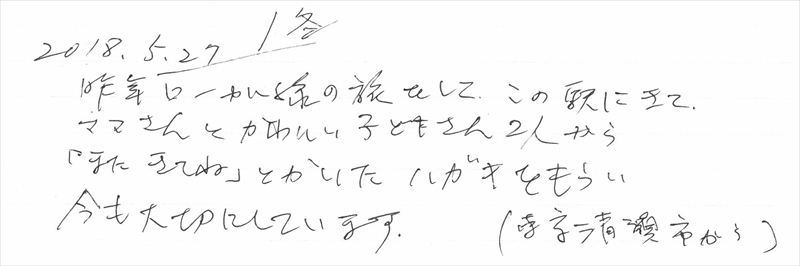 2018.5.27 1名
昨年ローカル線の旅をして、この駅にきて、
ママさんとかわいい子どもさん2人から
「またきてね」とかいたハガキをもらい
今も大切にしています。(東京清瀬市から)